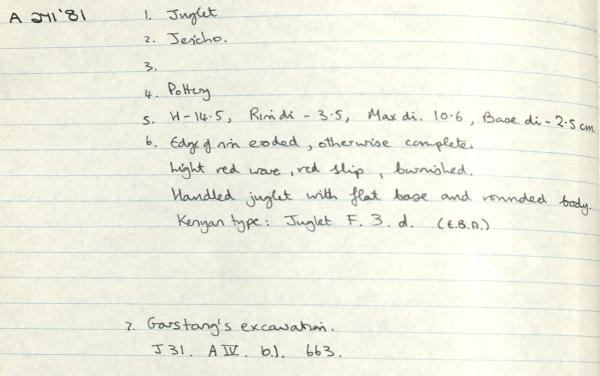 A 241'81
1. Juglet
2. Jericho.
3.
4. Pottery
5. H-14.5, Rim di - 3.5, Max di. 10.6, Base di - 2.5 cm.
6. Edge of rim eroded, otherwise complete.
Light red ware, red slip, burnished.
Handled juglet with flat base and rounded body.
Kenyan type: Juglet F. 3. d. (E.B.A.)
7. Garstang's excavation.
J 31. A IV. b.1. 663.